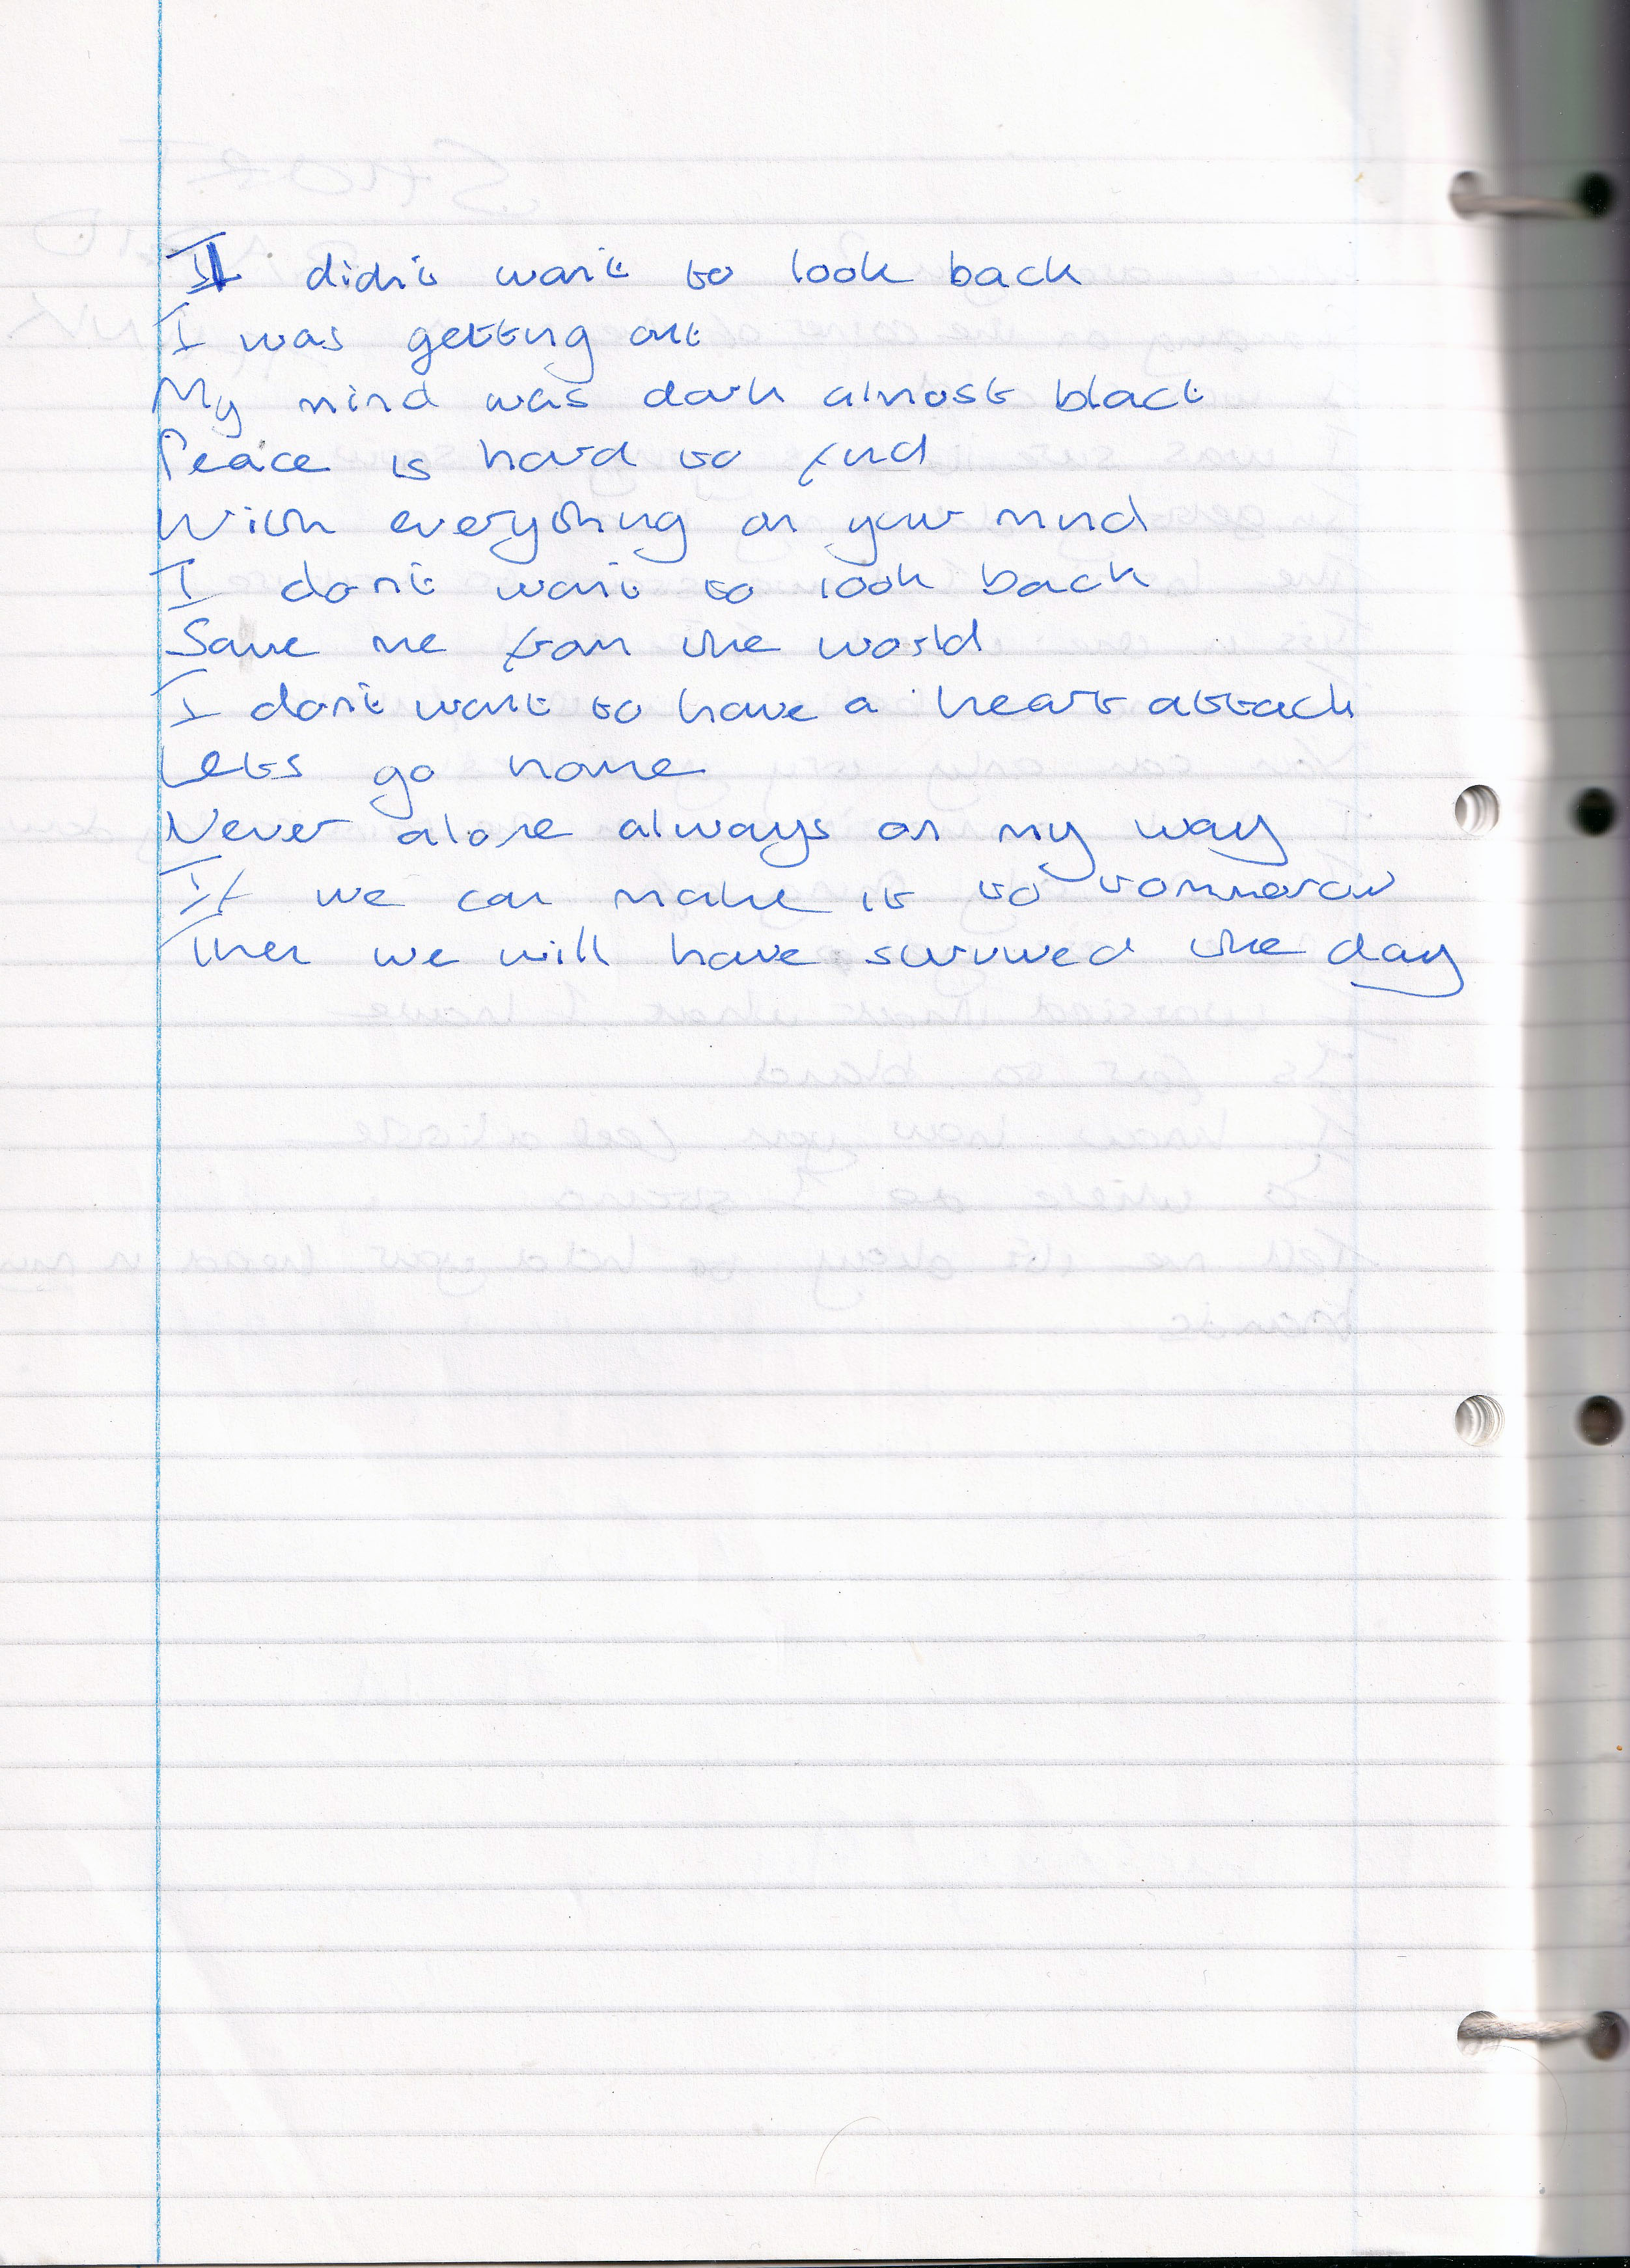 I didn't want to look back
I was getting out
My mind was dark almost black
Peace is hard to find
With everything on your mind
I don't want to look back
Save me from the world
I don't want to have a heart attack
Lets go home
Never alone always on my way
If we can make it to tommorow
Then we will have survived the day